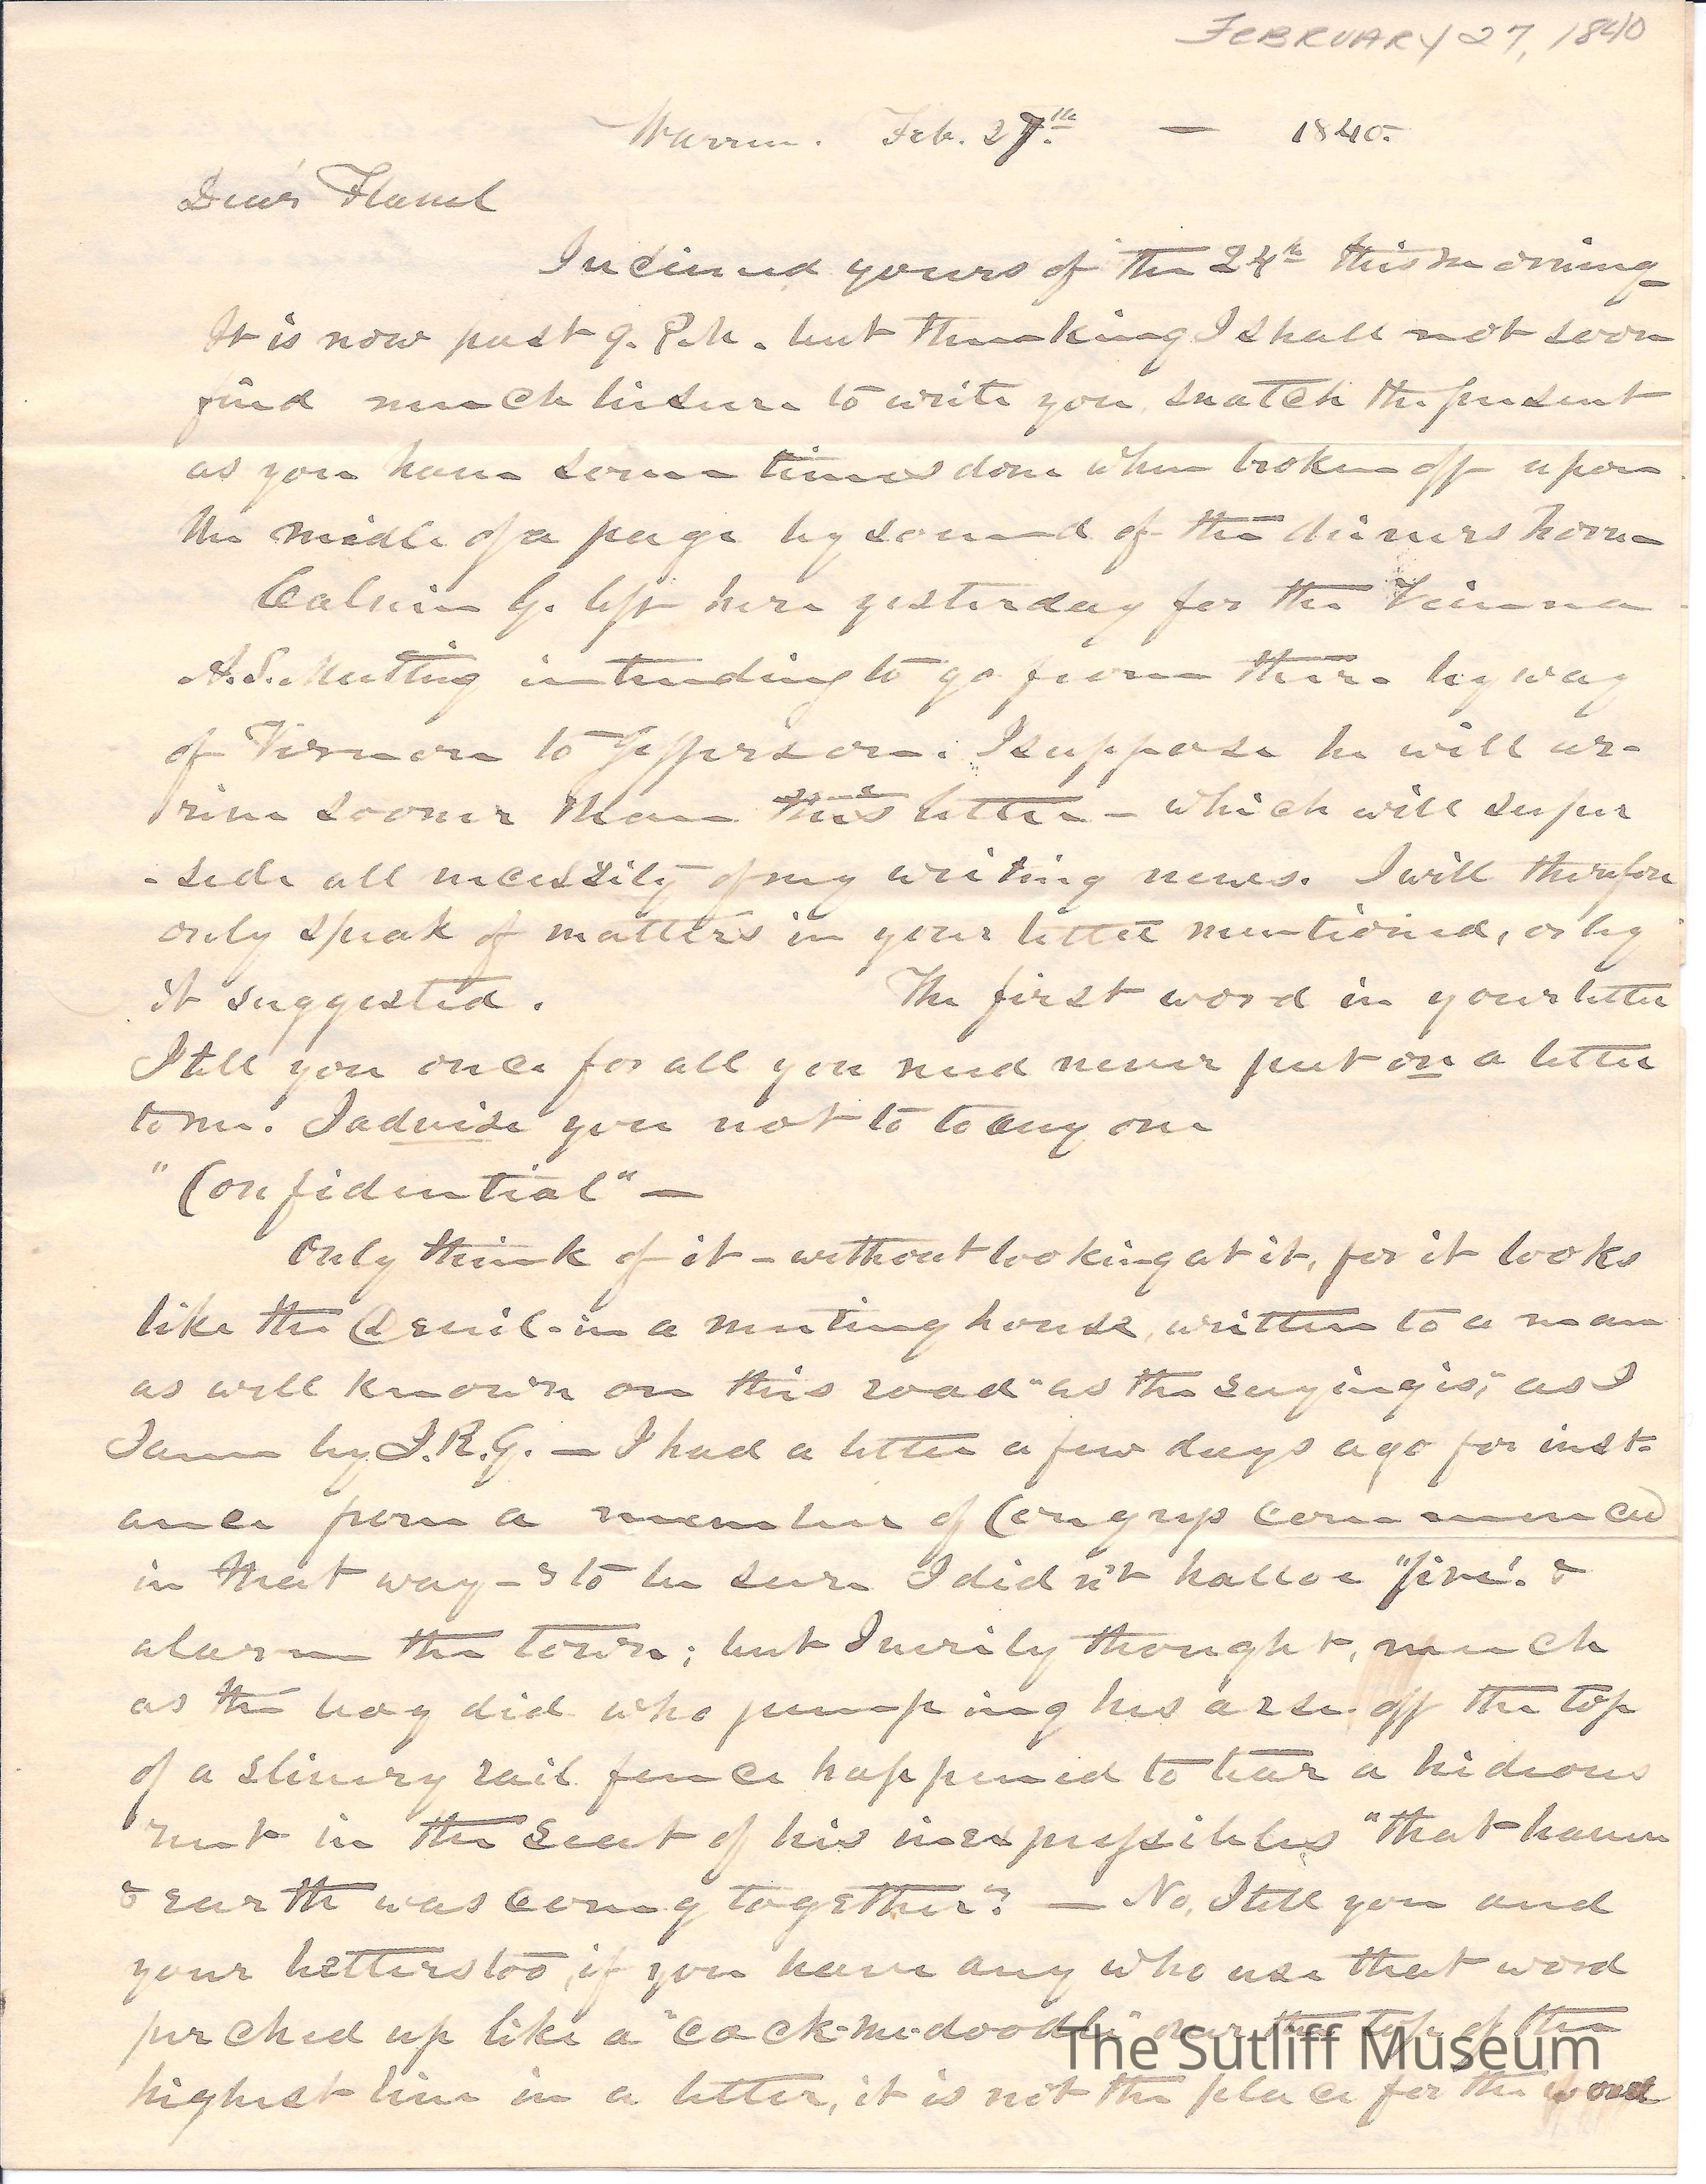 FEBRUARY 27, 1840
Warren. Feb. 27th. — 1840.
Dear Flavel
I received yours of the 24th this morning
It is now past 9. P.M. but thinking I shall not soon
find much leisure to write you, snatch the present
as you have some times done when broken off upon
the midle of a page by sound of the dinners horn
Calvin G. left here yesterday for the Vienna
A.S. Meeting intending to go from there by way
of Vernon to Jefferson. I suppose he will ar-
rive sooner than this letter - which will super
-sede all necessity of my writing news. I will therefore
only speak of matters in your letter mentioned, or by
it suggested. The first word in your letter
I tell you once for all you need never put on a letter
to me. I advise you not to to any one
"Confidential" —
Only think of it - without looking at it, for it looks
like the Devil - in a meeting house, written to a man
as well known on this road "as the saying is," as I
I am by J.R.G. — I had a letter a few days ago for inst-
ance from a member of Congress commenced
in that way - & to be sure I didn't halloe "fire'. &
alarm the town; but I verily thought, much
as the boy did who jumping his arse off the top
of a slivery rail fence happened to tear a hideous
rent in the seat of his inexpressibles "that heaven
& earth was coming together"? — No, I tell you and
your betters too, if you have any who use that word
perched up like a "cock-me-doodle" over the top of the
highest line in a letter, it is not the place for the word
The Sutliff Museum